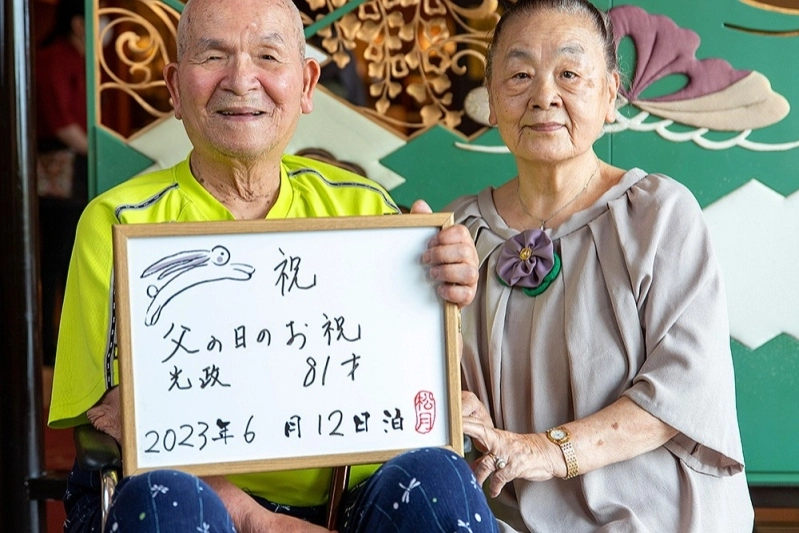 祝
父の日のお祝
光政 81才
2023年6月12日泊
松月